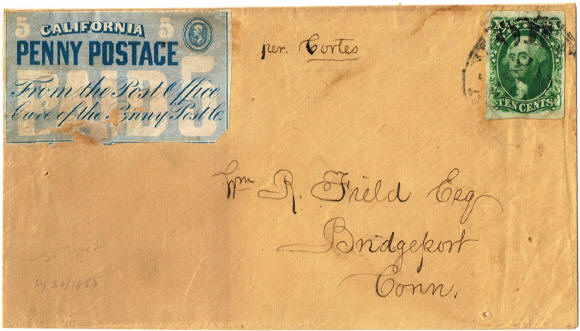 5 CALIFORNIA 5
PENNY POSTAGE
PAID 5
From the Post Office
Care of the Penny Post Co.
per. Cortes
TEN CENTS
Wm R. Field Esq
Bridgeport
Conn.
4/30/1855